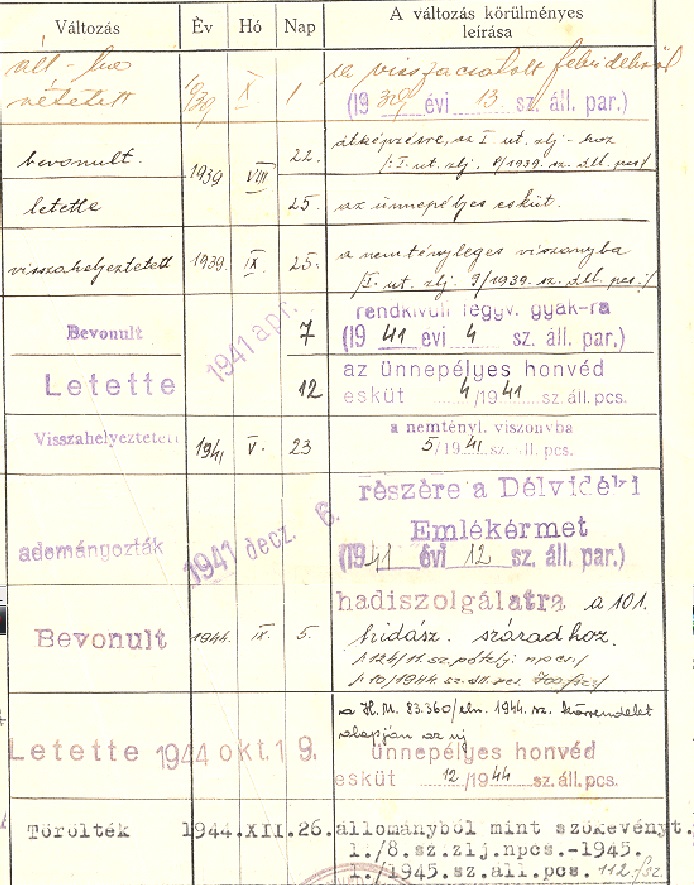 Változás Év Hó Nap A változás körülményes
leírása
áll-ba
vétetett 1939 X. 1 a visszacsatolt felvidékről
(1939 évi 13 sz. áll. par.)
bevonult. 1939 VIII 22. átképzésre, az I. ut. zlj-hoz
/:I. ut. zlj. 8/1939. sz. áll. pcs/
letette 25. az ünnepélyes esküt.
visszahelyeztetett 1939. IX. 25. a nemtényleges viszonyba
/I. ut. zlj. 9/1939. sz. áll. pcs./
Bevonult 1941 apr. 7 rendkivüli fegyv. gyak-ra
(1941 évi 4 sz. áll. par.)
Letette 12 az ünnepélyes honvéd
esküt 4/1941 sz. áll. pcs.
Visszahelyeztetett 1941 V. 23 a nemtényl. viszonyba
5/1941 sz. áll. pcs.
adományozták 1941 decz. 6. részére a Délvidéki
Emlékérmet
(1941 évi 12 sz. áll. par.)
Bevonult 1944. IX. 5. hadiszolgálatra a 101.
hidász. századhoz.
10/1944. sz. áll. pcs.
Letette 1944 okt. 19. a H. M. 83.360/eln. 1944. sz. körrendelet
alapján az uj
ünnepélyes honvéd
esküt 12/1944 sz. áll. pcs.
Törölték 1944.XII.26. állományból mint szökevényt.
1./8.sz.zlj.npcs.-1945.
1./1945.sz.áll.pcs. 112.